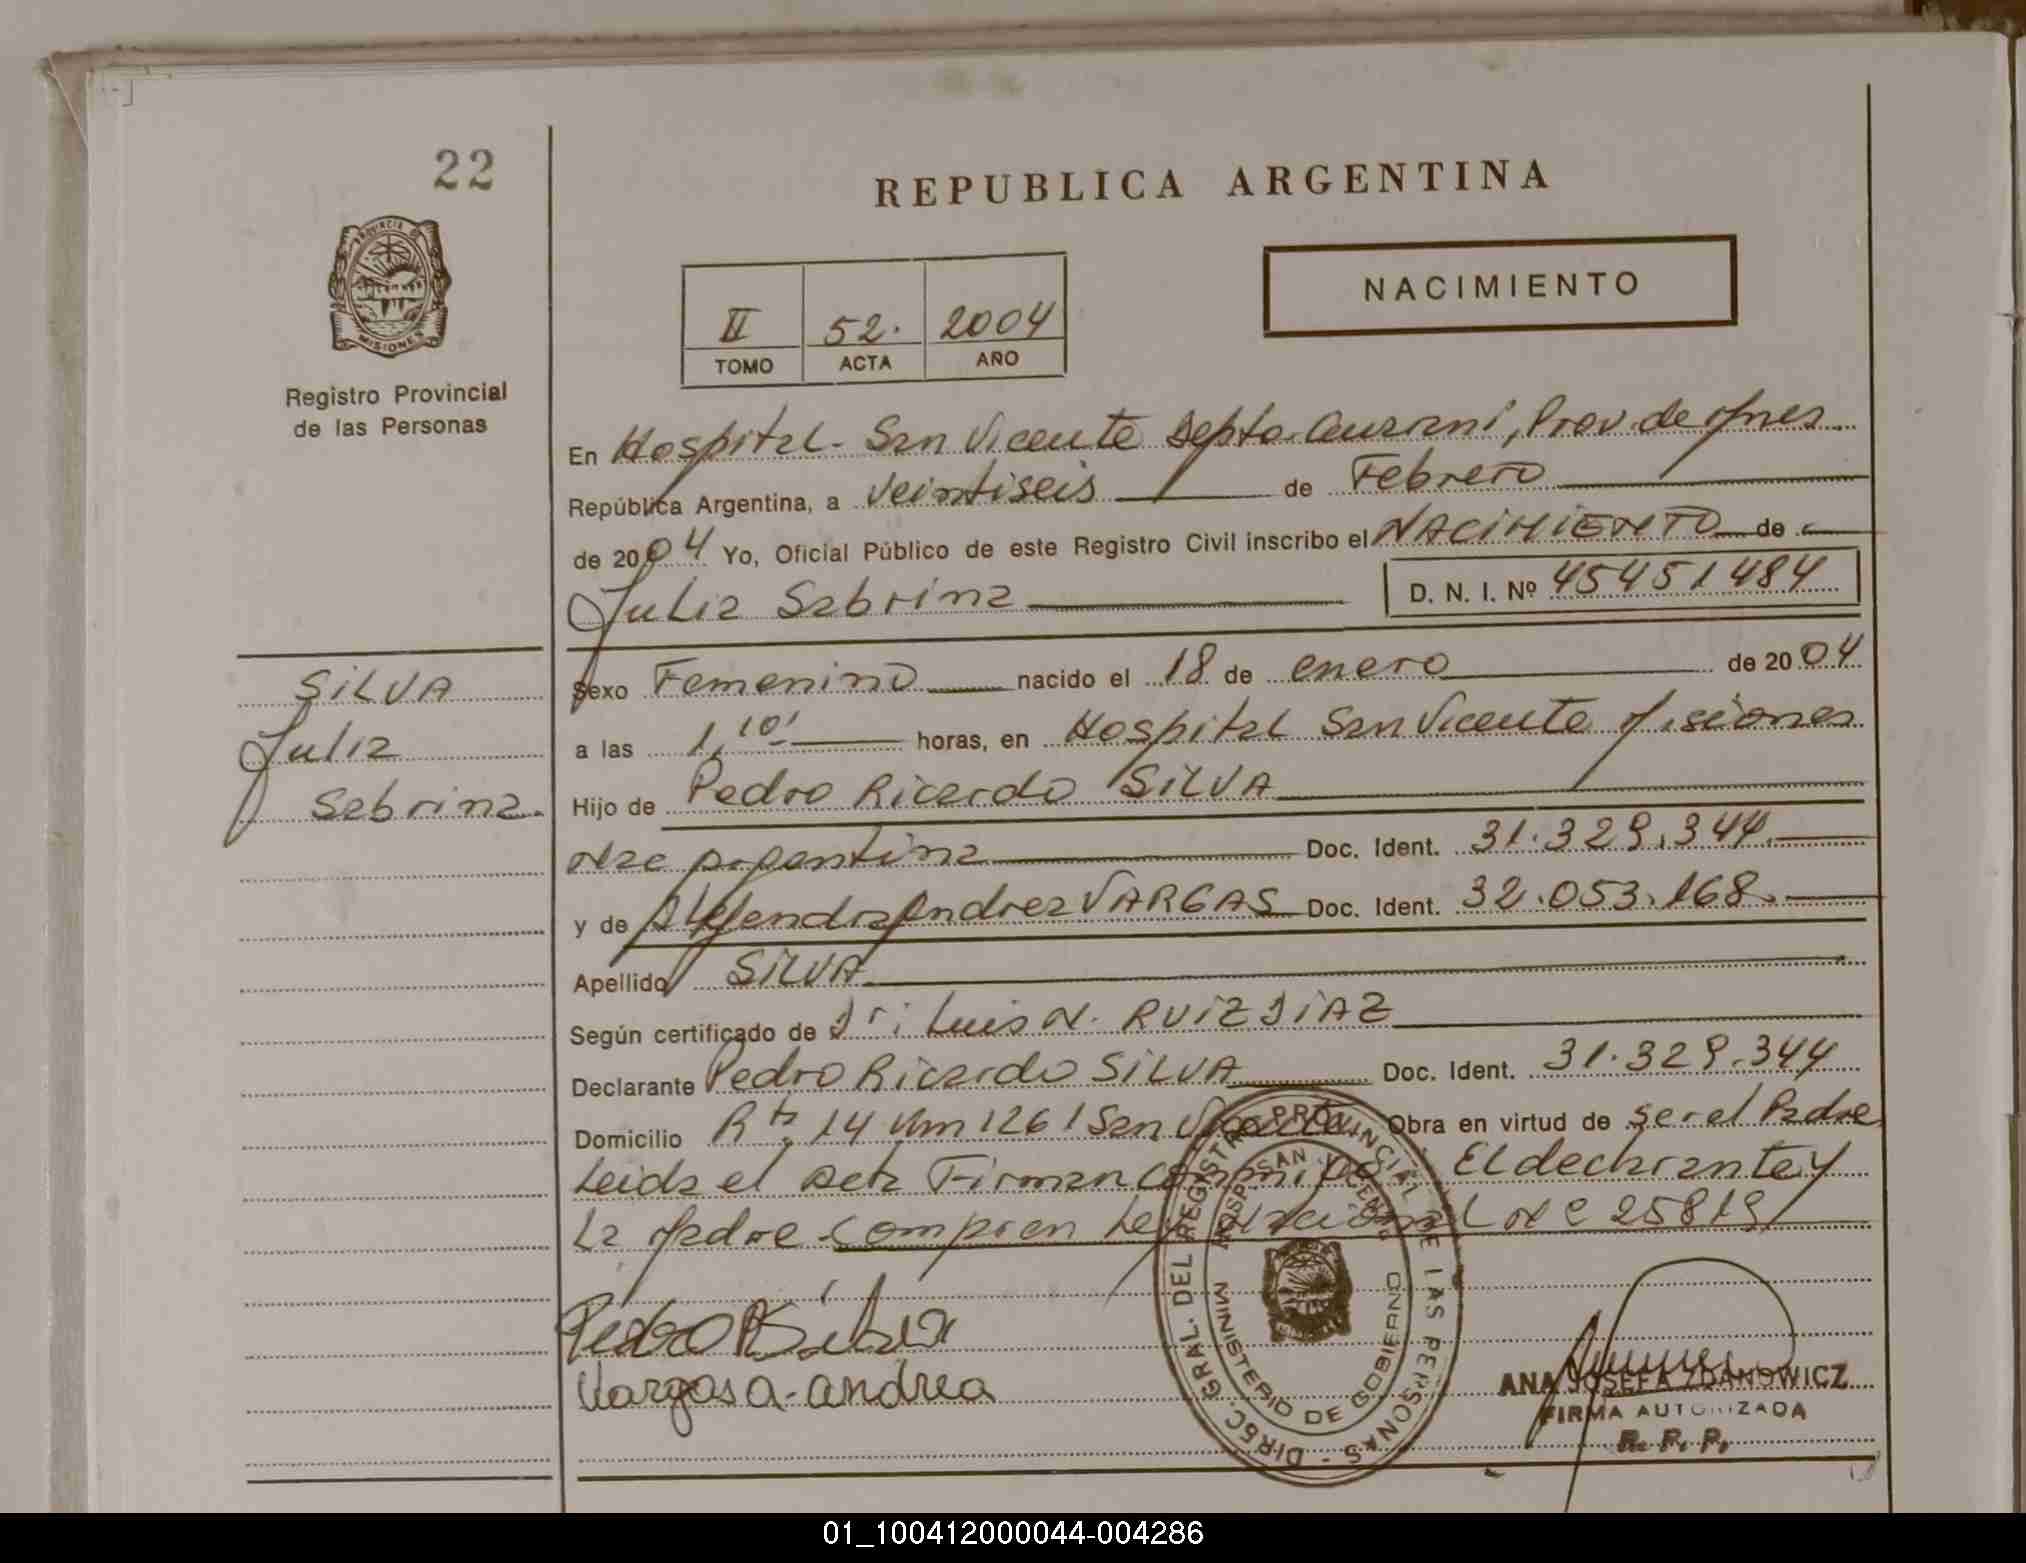 22
REPUBLICA ARGENTINA
PROVINCIA DE
MISIONES
Registro Provincial
de las Personas
NACIMIENTO
II 52. 2004
TOMO ACTA AÑO
En Hospital - San Vicente Depto. Guaraní, Prov. de Mnes
República Argentina, a veintiseis de Febrero
de 2004 Yo, Oficial Público de este Registro Civil inscribo el NACIMIENTO de
Julia Sabrina D. N. I. Nº 45451484
SILVA
Julia
Sabrina.
Sexo Femenino nacido el 18 de enero de 2004
a las 1,10' horas, en Hospital San Vicente Misiones
Hijo de Pedro Ricardo SILVA
Nac Argentina Doc. Ident. 31.329.344.
y de Alejandra Andrea VARGAS Doc. Ident. 32.053.168.
Apellido SILVA
Según certificado de Dr: Luis N. RUIZ DIAZ
Declarante Pedro Ricardo SILVA Doc. Ident. 31.329.344
Domicilio Rta 14 Km 1261 San Vicente Obra en virtud de ser el Padre
Leida el Acta Firman conmigo El declarante y
La Madre Ley Nacional Nº 25819
Pedro R Silva
Vargas A. andrea
DIREC. GRAL. DEL REGISTRO PROVINCIAL DE LAS PERSONAS -
HOSP. SAN VICENTE
MINISTERIO DE GOBIERNO
ANA JOSEFA ZDANOWICZ
FIRMA AUTORIZADA
R. P. P.
01_100412000044-004286